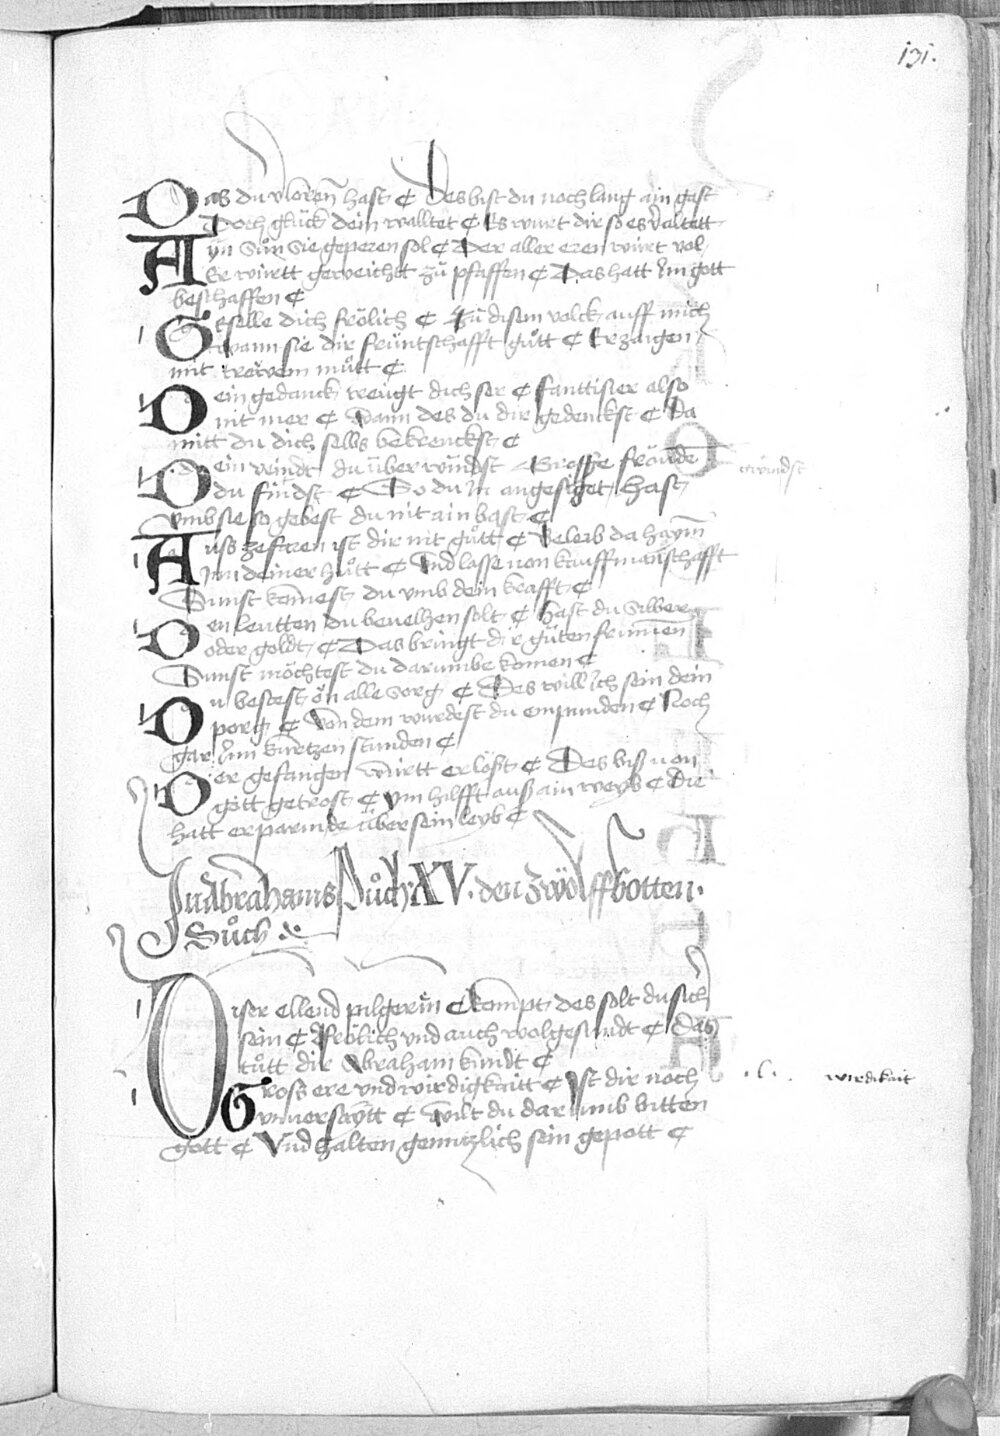 131.
Das du verloren hast ¢ Des bist du noch lang ain gast
Doch glück dein walltet ¢ Es wurt dir so es valtett
Ayn Sůn Sie geperen sol ¢ Der aller eren würt vol
Er württ geweichtt zů pfaffen ¢ Das hatt Im gott
beschaffen ¢
Geselle dich frölich ¢ Zů disem volck auff mich
wann sie dir früntschafft gůtt ¢ Erzaigen
mit trewem můtt ¢
Dein gedanck treugt dich ser ¢ fanttisier also
nit mer ¢ Wann des du dir gedenckst ¢ Da
mitt du dich selbs bekrenckst ¢
Dein veindt du überwündst Grosse fröude
du findst ¢ So du In angesiget hast
umb sie so gebest du nit ain bast ¢
Auss zefaren ist dir nit gůtt ¢ Beleib da haym
Inn deiner hůtt ¢ Und lasse von kauffmanschafft
Sunst kemest du umb dein krafft ¢
Den leutten du bevelhen solt ¢ hast du Silber
oder goldt ¢ Das bringt dir gůten frumen
Sunst möchtest du darumbe komen ¢
Du bestest on alle sorg ¢ Des will Ich sein dein
porg ¢ Von dem wurdest du enpunden ¢ Noch
gar Inn kurtzen stunden ¢
Der gefangen württ erlöst ¢ Des biss von
gott getrost ¢ Im hilfft auß ain weyb ¢ Die
hatt erparmde über sein leyb ¢
In Abrahams Půch XV. den zwölffbotten.
Sůch
Diser ellend pilgerin ¢ kompt des solt du sich
sein ¢ Frölich und auch wolgesundt ¢ das
tůtt dir Abraham kundt ¢
Gross ere und wirdigkaitt ¢ Ist dir noch
unverseytt ¢ Wilt du darumb bitten
gott ¢ Und halten genutzlich sein gepott ¢
wirdikait